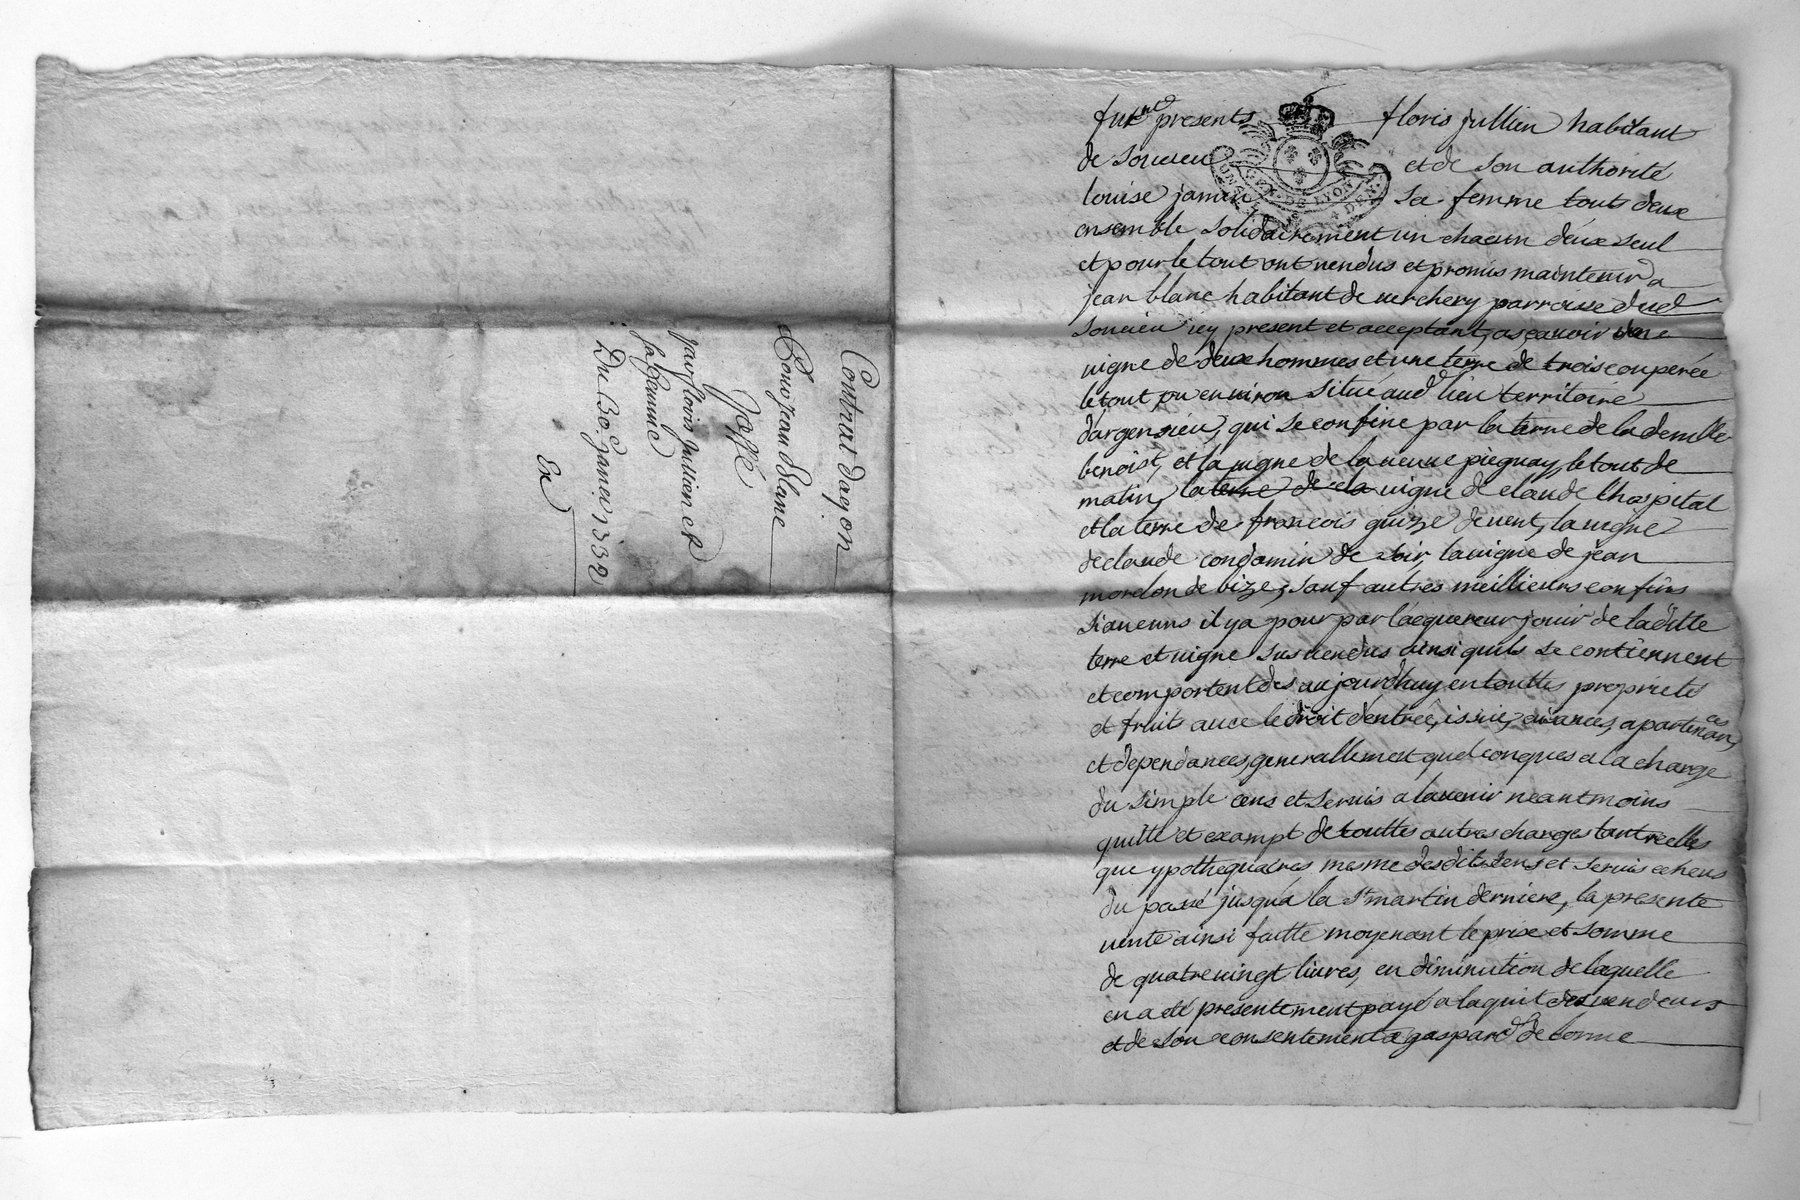 Contrat d'aqon
Pour jean Blanc
Passé
par floris Jullien et
sa femme
Du 30e. Janvier 1732
Ex
fur.nt presents floris jullien habitant
de soucieu et de son authorité
louise jamin sa femme touts deux
ensemble solidairement un chacun d'eux seul
et pour le tout ont vendus et promis maintenir a
jean blanc habitant de verchery parroisse dud
soucieu icy present et acceptant, asçavoir une
vigne de deux hommes et une terre de trois couperée
le tout ou environ situé aud lieu territoire
d'argensieu, qui se confine par la terre de la demlle
benoist, et la vigne de la veuve pieguay, le tout de
matin, la terre de la vigne de claude l'hospital
et la terre de francois guize de vent, la vigne
de claude condamin de soir la vigne de jean
mordon de bize, sauf autres meillieurs confins
si aucuns il y a pour par l'acquereur jouir de la ditte
terre et vigne sus vendus ainsi quils se contiennent
et comportent des aujourdhuy en touttes proprieté
et fruits avec le droit d'entrée, issüe, aisances, apartenances,
et dependances, generallement quelconques a la charge
du simple cens et servis a lavenir neantmoins
quitte et exampt de touttes autres charges tant reelles
que ypothequaires mesme desdits cens et servis echeus
du passé jusqu'a la St martin derniere, la presente
vente ainsi faitte moyenant le prix et somme
de quatre vingt livres, en diminution de laquelle
en a eté presentement payé a laquit des vendeurs
et de son consentement a gaspard de lorme
UNGE GEN. DE LYON 4 DEN.